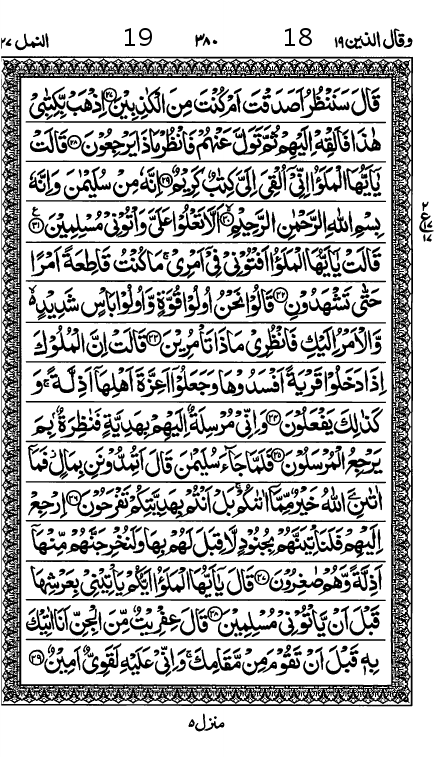 وقال الذين ١٩ 18 ٣٨٠ 19 النمل ٢٧
قَالَ سَنَنْظُرُ اَصَدَقْتَ اَمْ كُنْتَ مِنَ الْكٰذِبِيْنَ ﴿٢٧﴾ اِذْهَبْ بِّكِتٰبِيْ
هٰذَا فَاَلْقِهْ اِلَيْهِمْ ثُمَّ تَوَلَّ عَنْهُمْ فَانْظُرْ مَاذَا يَرْجِعُوْنَ ﴿٢٨﴾ قَالَتْ
يٰۤاَيُّهَا الْمَلَؤُا اِنِّيْۤ اُلْقِيَ اِلَيَّ كِتٰبٌ كَرِيْمٌ ﴿٢٩﴾ اِنَّهٗ مِنْ سُلَيْمٰنَ وَاِنَّهٗ
بِسْمِ اللّٰهِ الرَّحْمٰنِ الرَّحِيْمِ ﴿٣٠﴾ اَلَّا تَعْلُوْا عَلَيَّ وَاْتُوْنِيْ مُسْلِمِيْنَ ﴿٣١﴾
قَالَتْ يٰۤاَيُّهَا الْمَلَؤُا اَفْتُوْنِيْ فِيْۤ اَمْرِيْ ۚ مَا كُنْتُ قَاطِعَةً اَمْرًا
حَتّٰى تَشْهَدُوْنِ ﴿٣٢﴾ قَالُوْا نَحْنُ اُولُوْا قُوَّةٍ وَّاُولُوْا بَاْسٍ شَدِيْدٍ ۙ
وَّالْاَمْرُ اِلَيْكِ فَانْظُرِيْ مَاذَا تَاْمُرِيْنَ ﴿٣٣﴾ قَالَتْ اِنَّ الْمُلُوْكَ
اِذَا دَخَلُوْا قَرْيَةً اَفْسَدُوْهَا وَجَعَلُوْۤا اَعِزَّةَ اَهْلِهَاۤ اَذِلَّةً ۚ وَ
كَذٰلِكَ يَفْعَلُوْنَ ﴿٣٤﴾ وَاِنِّيْ مُرْسِلَةٌ اِلَيْهِمْ بِهَدِيَّةٍ فَنٰظِرَةٌۢ بِمَ
يَرْجِعُ الْمُرْسَلُوْنَ ﴿٣٥﴾ فَلَمَّا جَآءَ سُلَيْمٰنَ قَالَ اَتُمِدُّوْنَنِ بِمَالٍ ۫ فَمَاۤ
اٰتٰىنِۦَ اللّٰهُ خَيْرٌ مِّمَّاۤ اٰتٰىكُمْ ۚ بَلْ اَنْتُمْ بِهَدِيَّتِكُمْ تَفْرَحُوْنَ ﴿٣٦﴾ اِرْجِعْ
اِلَيْهِمْ فَلَنَاْتِيَنَّهُمْ بِجُنُوْدٍ لَّا قِبَلَ لَهُمْ بِهَا وَلَنُخْرِجَنَّهُمْ مِّنْهَاۤ
اَذِلَّةً وَّهُمْ صٰغِرُوْنَ ﴿٣٧﴾ قَالَ يٰۤاَيُّهَا الْمَلَؤُا اَيُّكُمْ يَاْتِيْنِيْ بِعَرْشِهَا
قَبْلَ اَنْ يَّاْتُوْنِيْ مُسْلِمِيْنَ ﴿٣٨﴾ قَالَ عِفْرِيْتٌ مِّنَ الْجِنِّ اَنَا اٰتِيْكَ
بِهٖ قَبْلَ اَنْ تَقُوْمَ مِنْ مَّقَامِكَ ۚ وَاِنِّيْ عَلَيْهِ لَقَوِيٌّ اَمِيْنٌ ﴿٣٩﴾
منزل ٥